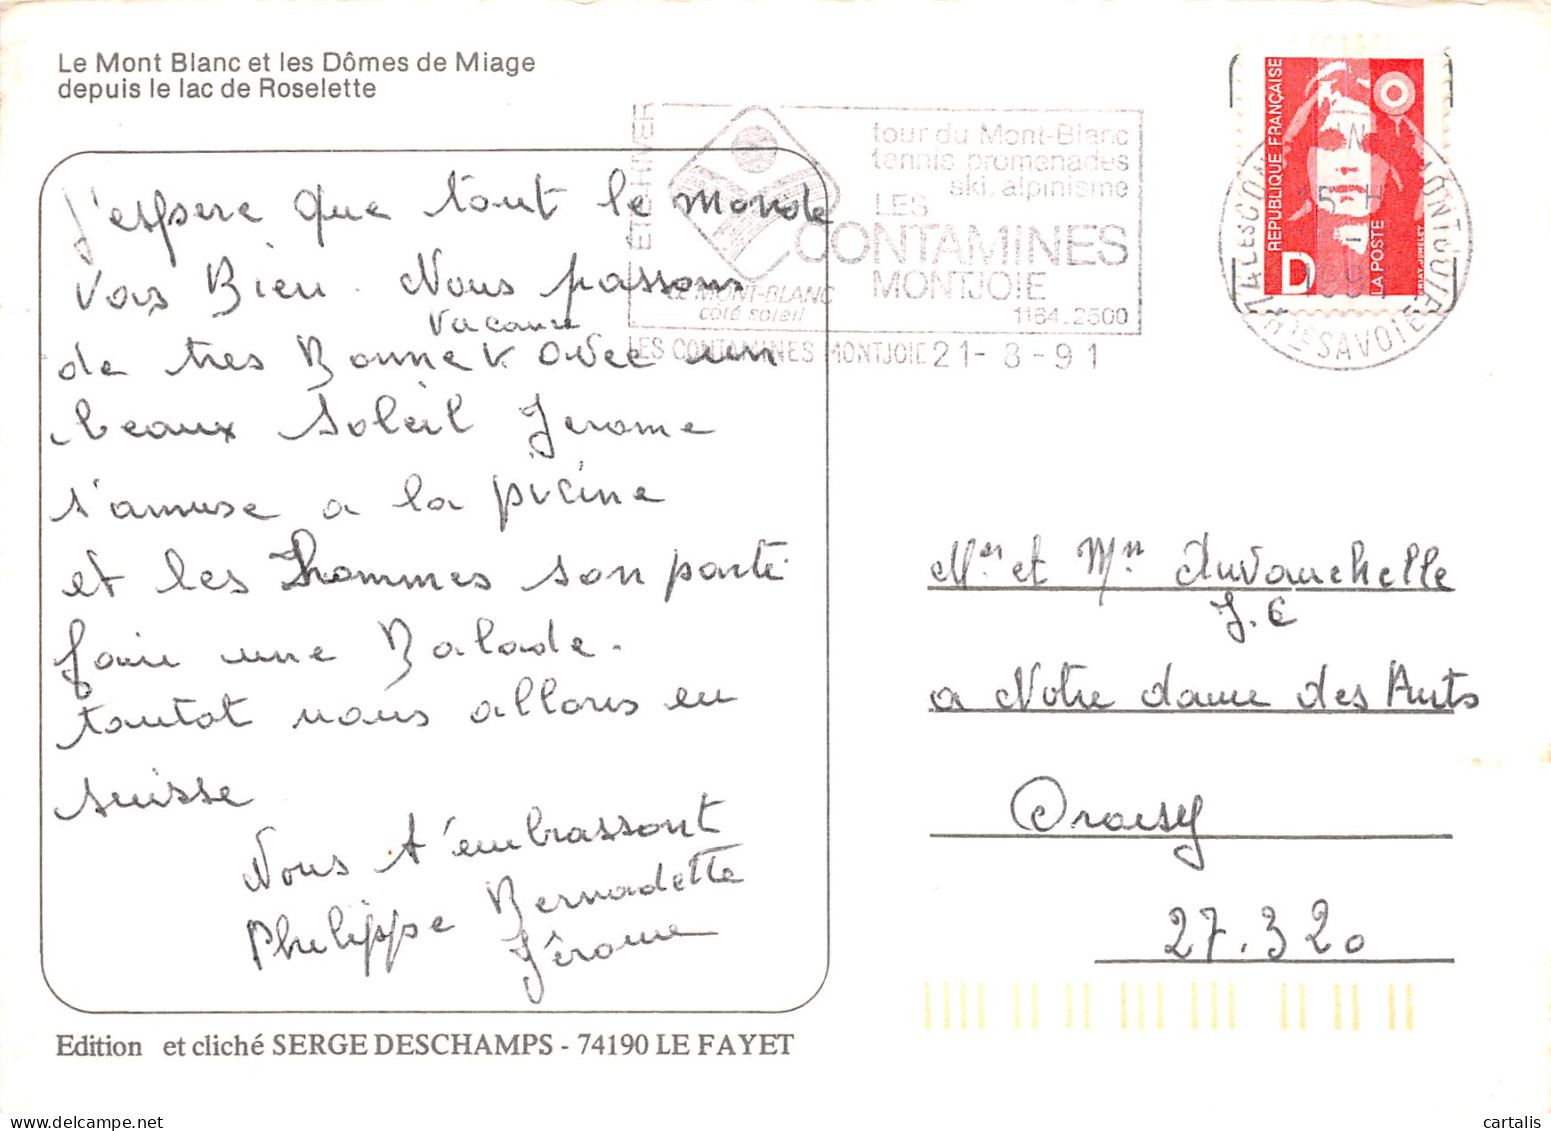 Le Mont Blanc et les Dômes de Miage
depuis le lac de Roselette
ETE HIVER
tour du Mont-Blanc
tennis promenades
ski. alpinisme
LES
CONTAMINES
MONTJOIE
LE MONT-BLANC
coté soleil
1164-2500
LES CONTAMINES MONTJOIE 21-8-91
REPUBLIQUE FRANÇAISE
D
LA POSTE
BRIAT-JUMELET
74 LES CONTAMINES MONTJOIE
15 H
1991
Hte SAVOIE
J'espere que tout le monde
vas Bien. Nous passons
vacance
de tres Bonne v. avec un
beaux soleil Jerome
s'amuse a la picine
et les hommes son partie
faire une Balade.
tantot nous allons en
suisse
Nous t'embrassont
Philippe Bernadette
Jérome
Mer et Mm duvauchelle
J.C
a Notre dame des Puits
Croisy
27.320
Edition et cliché SERGE DESCHAMPS - 74190 LE FAYET
cartalis